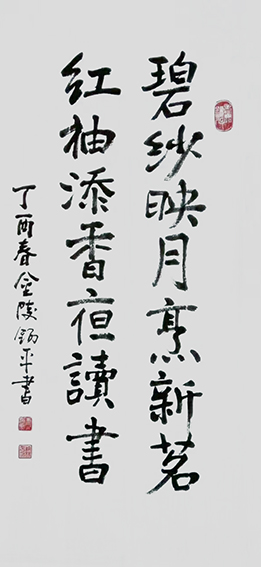 碧纱映月烹新茗
红袖添香夜讀書
丁酉春金陵炳平書